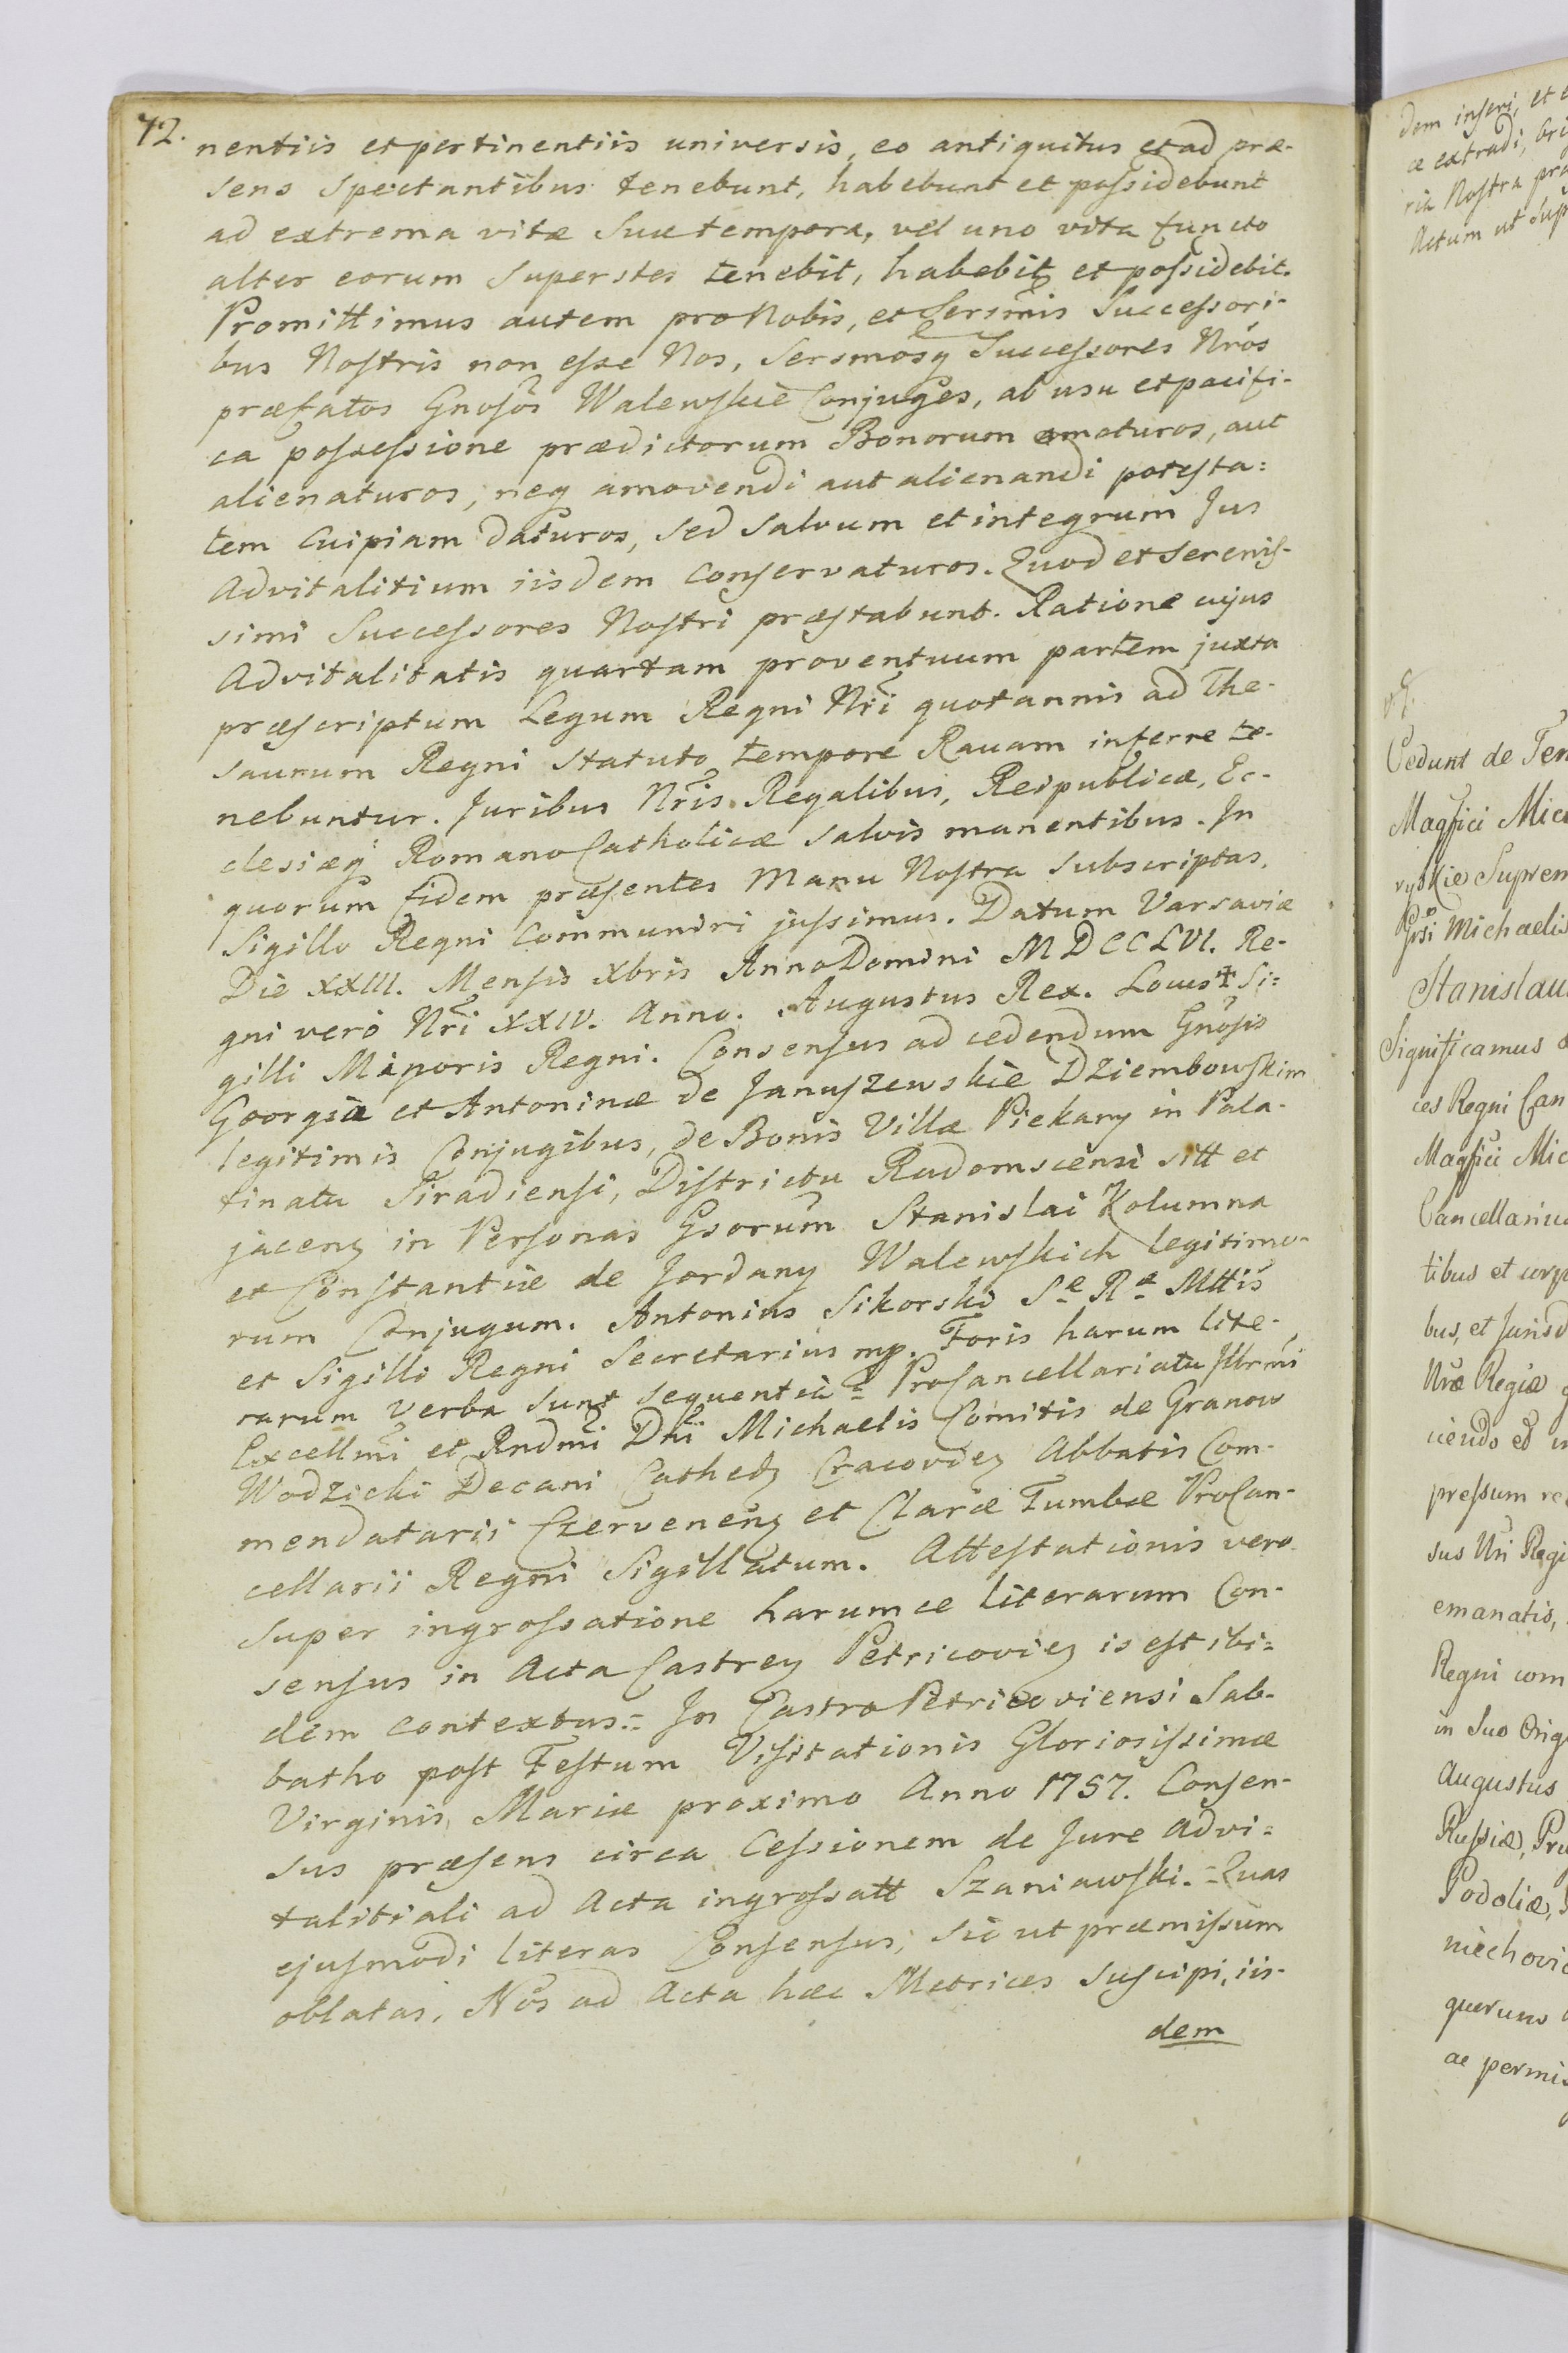 72.
nentiis et pertinentiis universis, eo antiquitus et ad præ-
sens Spectantibus tenebunt, habebunt et possidebunt
ad extrema vitæ Suæ tempora, vel uno vita functo
alter eorum Superstes tenebit, habebit et possidebit.
Promittimus autem pro Nobis, et Sersmis Successori-
bus Nostris non esse Nos, Sersmosq Successores Nros
præfatos Gnosos Walewskie Conjuges, ab usu et pacifi-
ca possessione prædictorum Bonorum amoturos, aut
alienaturos, neq amovendi aut alienandi potesta=
tem Cuipiam daturos, Sed Salvum et integrum Jus
Advitalitium iisdem Conservaturos. Quod et Serenis-
simi Successores Nostri præstabunt. Ratione cujus
Advitalitatis quartam proventuum partem juxta
præscriptum Legum Regni Nri quotannis ad The-
saurum Regni Statuto tempore Ravam inferre te-
nebuntur. Juribus Nris Regalibus, Reipublicæ, Ec-
clesiæq Romano Catholicæ Salvis manentibus. In
quorum fidem præsentes Manu Nostra Subscriptas,
Sigillo Regni Communiri jussimus. Datum Varsaviæ
Die XXIII. Mensis Xbris Anno Domini MDCCLVI. Re-
gni vero Nri XXIV. Anno. Augustus Rex. Locus ✝ Si=
gilli Minoris Regni. Consensus ad cedendum Gnosis
Georgio et Antoninæ de Januszewskie Dziembowskim
legitimis Conjugibus, de Bonis Villæ Piekary in Pala-
tinatu Siradiensi, Districtu Radomsciensi sitt et
jacenz in Personas Gsorum Stanislai Kolumna
et Constantiæ de Jordany Walewskich legitimo-
rum Conjugum. Antonius Sikorski S.e R.æ Mttis
et Sigilli Regni Secretarius mp. Foris harum lite-
rarum verba sunt sequentia = Procancellariatu Illrmi
Excellmi et Rndmi Dni Michaelis Comitis de Granow
Wodzicki Decani Cathedz Cracovdez Abbatis Com-
mendatarii Czervenenz et Claræ Tumbæ Procan-
cellarii Regni Sigillatum. Attestationis vero
Super ingrossatione harumce literarum Con-
sensus in Acta Castrez Petricoviez is est ibi=
dem contextus = In Castro Petricoviensi Sab-
batho post Festum Visitationis Gloriosissimæ
Virginis Mariæ proximo Anno 1757. Consen-
sus præsens circa Cessionem de Jure Advi=
talitiali ad Acta ingrossatt Szaniawski. = Quas
ejusmodi literas Consensus, sic ut præmissum
oblatas, Nos ad Acta hæc Metrices suscipi, iis-
dem
dem inseri, et
ac extradi,
ria Nostra
Actum ut
Cedunt de
Magfici
vyskie Suprem
Grsi Michaelis
Stanislaus
Significamus
ces Regni Can
Magfici Mic
Cancellarius
tibus et
bus, et Jurisd
Nræ Regiæ
uendo
pressum
sus Nri Regi
emanatis,
Regni com
in Suo Orig
Augustus
Russiæ, Pru
Podoliæ,
niechovi
ac permis